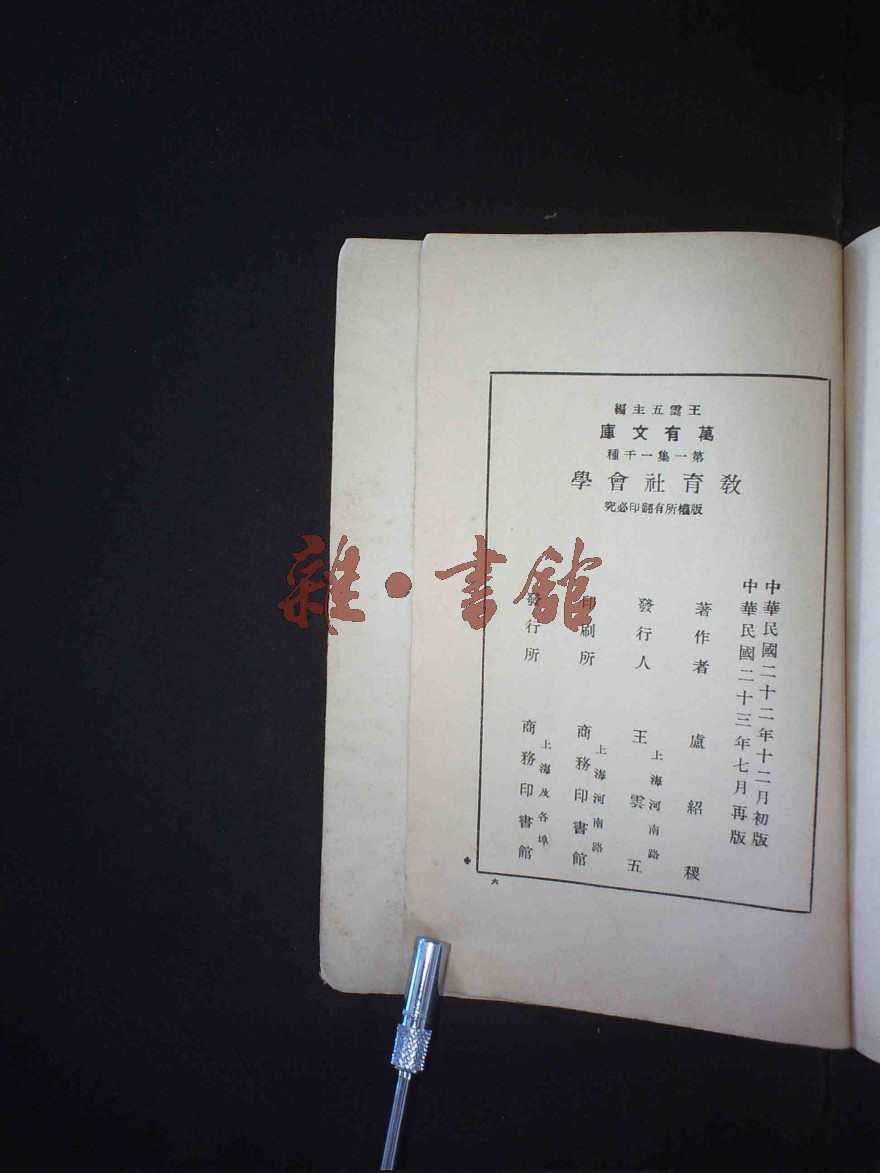 王雲五主編
萬有文庫
第一集一千種
教育社會學
版權所有翻印必究
中華民國二十二年十二月初版
中華民國二十三年七月再版
著作者 盧紹稷
發行人 上海河南路 王雲五
印刷所 上海河南路 商務印書館
發行所 上海及各埠 商務印書館
六
雜·書館